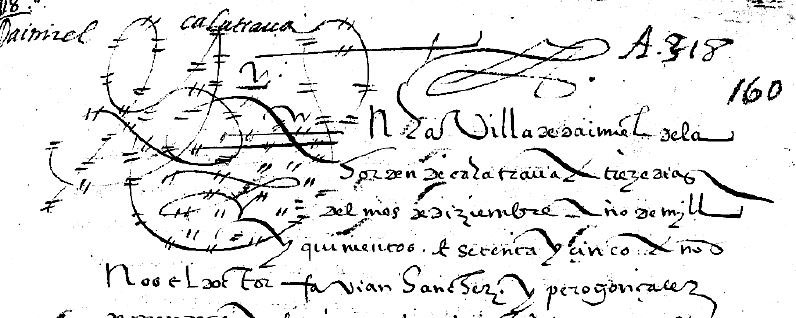 18.
Daimiel calatraua
A. 318
160
N la Villa de daimiel dela
horden de calatraua a treze dias
del mes de diziembre año de myll
quinientos. E setenta y cinco años
Nos el doctor fauian Sanchez. y pero gonçalez